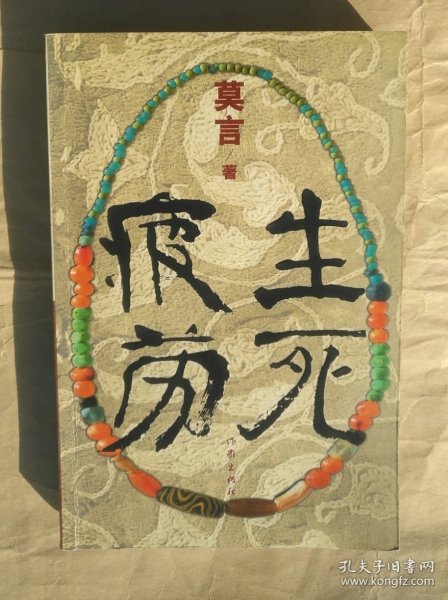 莫言/著
生死
疲劳
作家出版社
孔夫子旧书网
www.kongfz.com